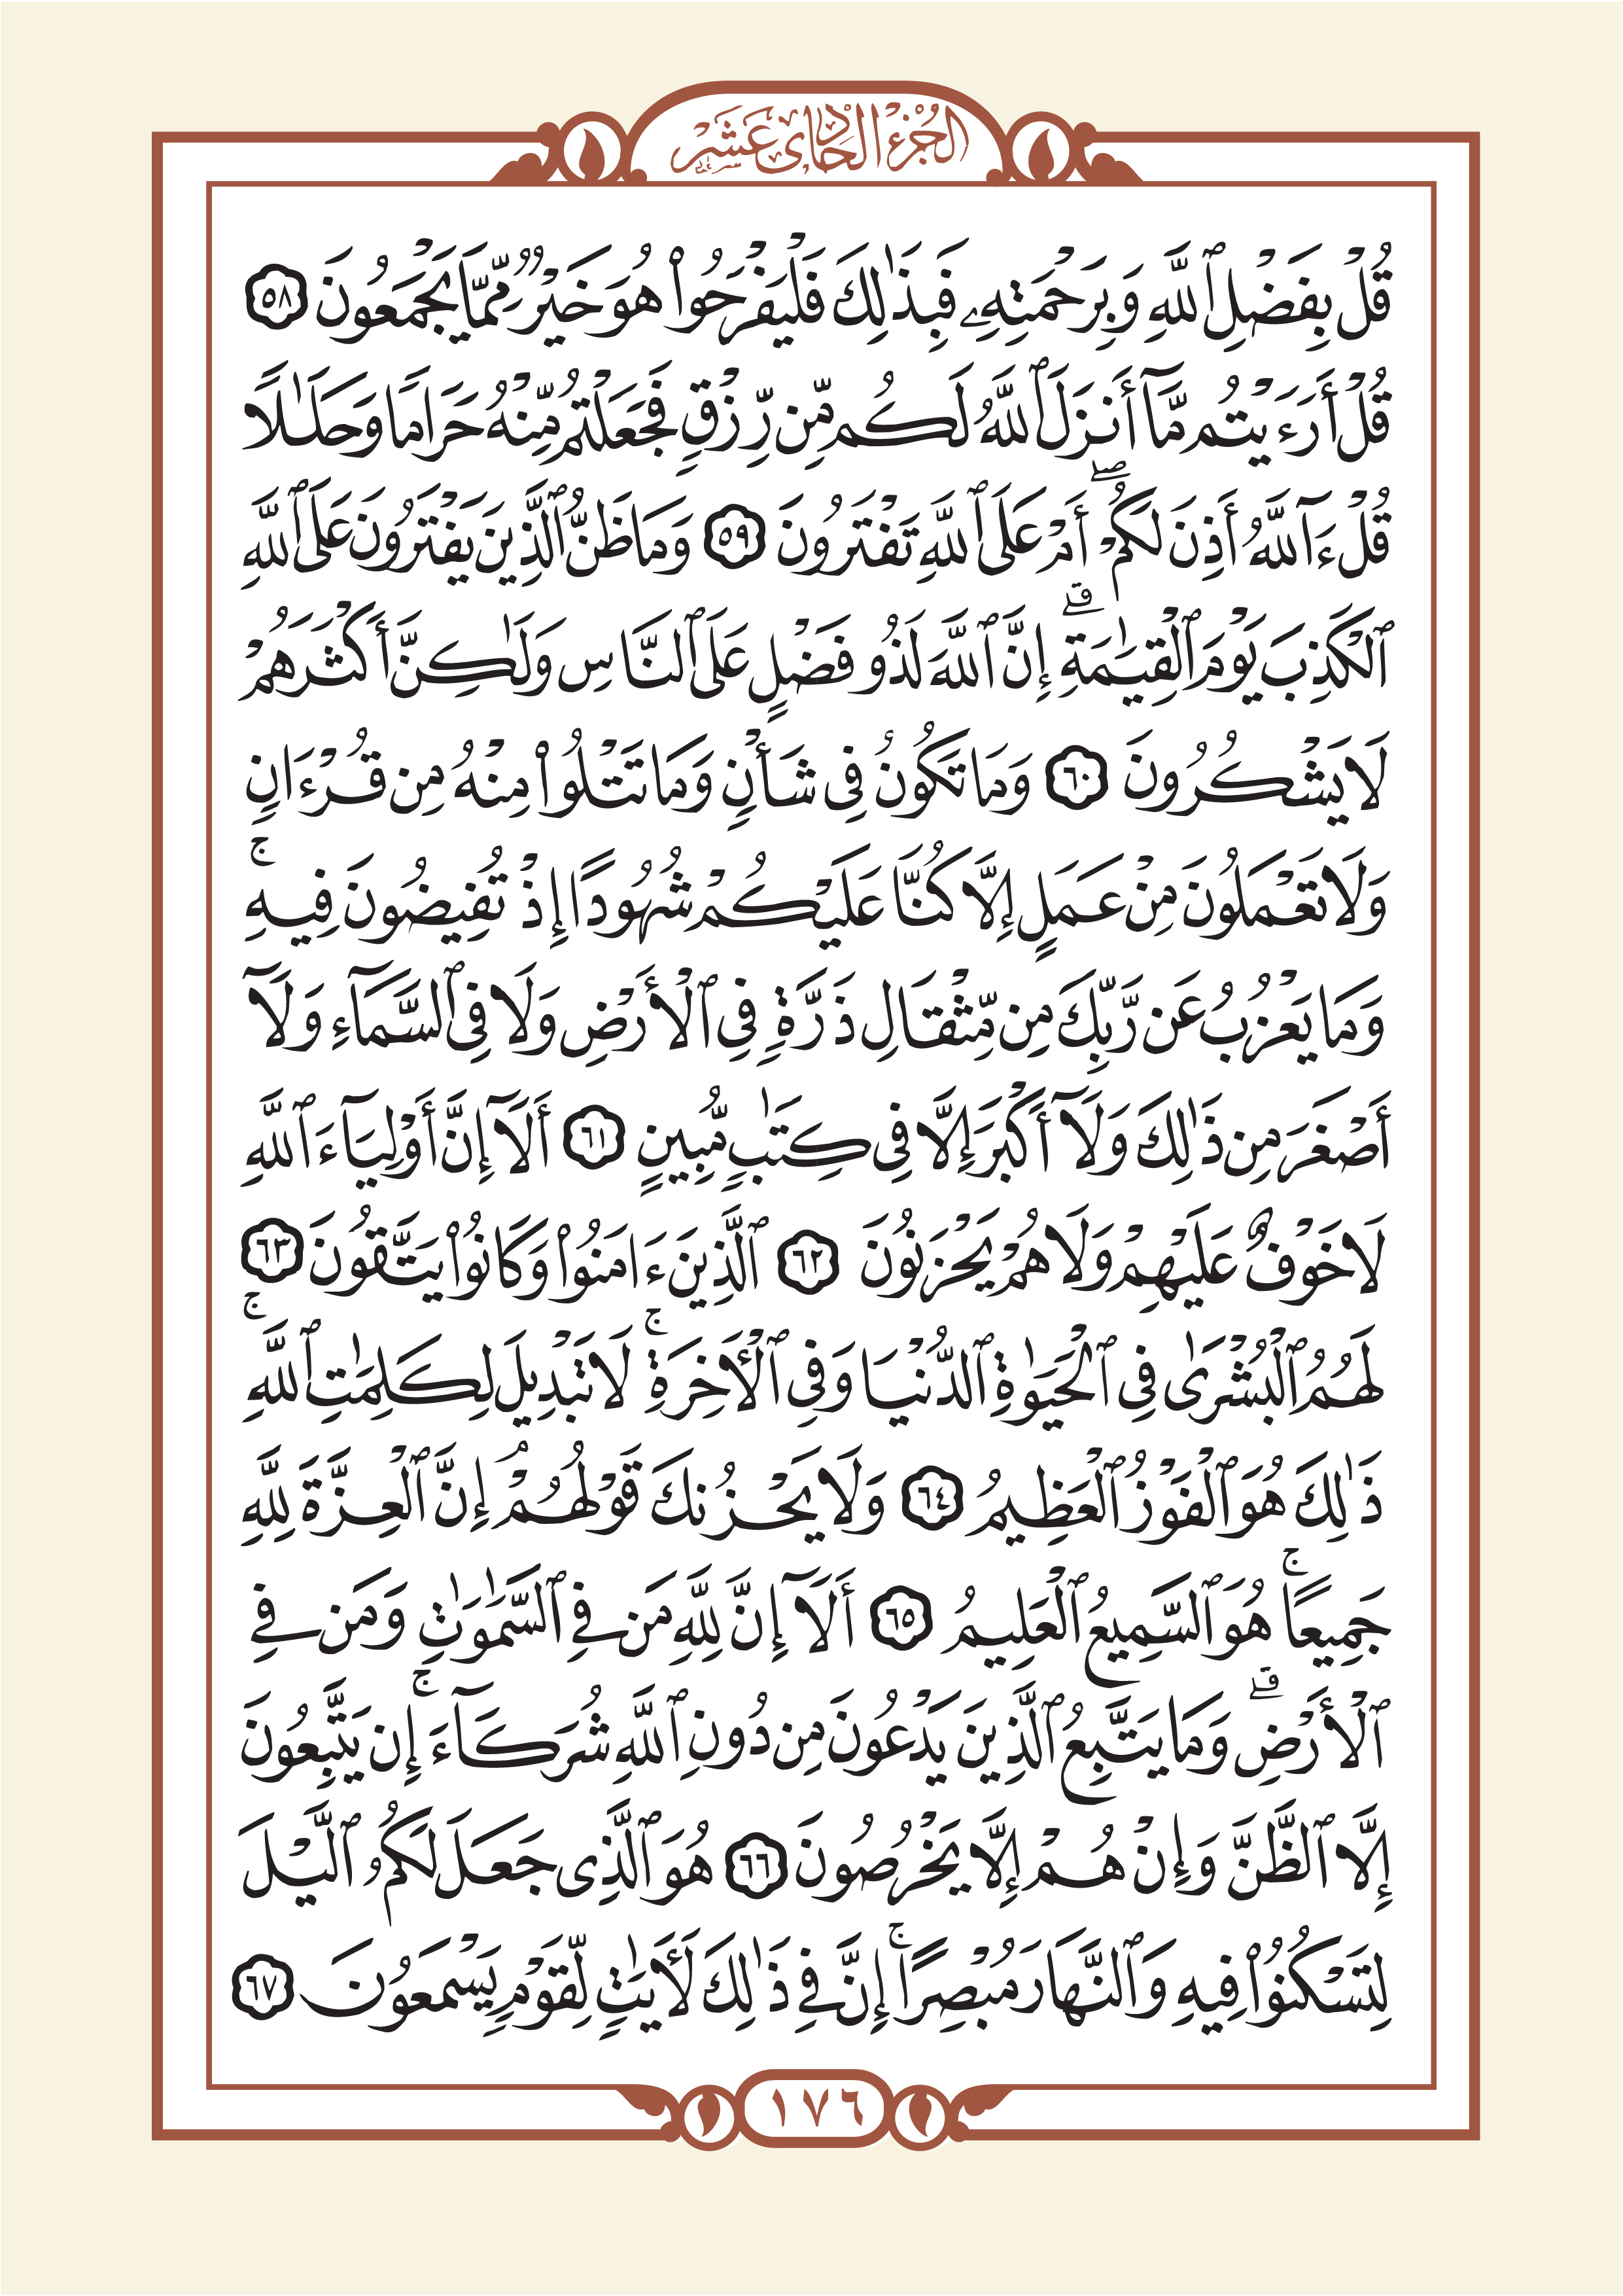 الجزء الحادى عشر
قُلْ بِفَضْلِ ٱللَّهِ وَبِرَحْمَتِهِۦ فَبِذَٰلِكَ فَلْيَفْرَحُوا۟ هُوَ خَيْرٌۭ مِّمَّا يَجْمَعُونَ ٥٨
قُلْ أَرَءَيْتُم مَّآ أَنزَلَ ٱللَّهُ لَكُم مِّن رِّزْقٍ فَجَعَلْتُم مِّنْهُ حَرَامًا وَحَلَـٰلًا
قُلْ ءَآللَّهُ أَذِنَ لَكُمْ ۖ أَمْ عَلَى ٱللَّهِ تَفْتَرُونَ ٥٩ وَمَا ظَنُّ ٱلَّذِينَ يَفْتَرُونَ عَلَى ٱللَّهِ
ٱلْكَذِبَ يَوْمَ ٱلْقِيَـٰمَةِ ۗ إِنَّ ٱللَّهَ لَذُو فَضْلٍ عَلَى ٱلنَّاسِ وَلَـٰكِنَّ أَكْثَرَهُمْ
لَا يَشْكُرُونَ ٦٠ وَمَا تَكُونُ فِى شَأْنٍ وَمَا تَتْلُوا۟ مِنْهُ مِن قُرْءَانٍ
وَلَا تَعْمَلُونَ مِنْ عَمَلٍ إِلَّا كُنَّا عَلَيْكُمْ شُهُودًا إِذْ تُفِيضُونَ فِيهِ ۚ
وَمَا يَعْزُبُ عَن رَّبِّكَ مِن مِّثْقَالِ ذَرَّةٍ فِى ٱلْأَرْضِ وَلَا فِى ٱلسَّمَآءِ وَلَآ
أَصْغَرَ مِن ذَٰلِكَ وَلَآ أَكْبَرَ إِلَّا فِى كِتَـٰبٍ مُّبِينٍ ٦١ أَلَآ إِنَّ أَوْلِيَآءَ ٱللَّهِ
لَا خَوْفٌ عَلَيْهِمْ وَلَا هُمْ يَحْزَنُونَ ٦٢ ٱلَّذِينَ ءَامَنُوا۟ وَكَانُوا۟ يَتَّقُونَ ٦٣
لَهُمُ ٱلْبُشْرَىٰ فِى ٱلْحَيَوٰةِ ٱلدُّنْيَا وَفِى ٱلْأَخِرَةِ ۚ لَا تَبْدِيلَ لِكَلِمَـٰتِ ٱللَّهِ ۚ
ذَٰلِكَ هُوَ ٱلْفَوْزُ ٱلْعَظِيمُ ٦٤ وَلَا يَحْزُنكَ قَوْلُهُمْ ۘ إِنَّ ٱلْعِزَّةَ لِلَّهِ
جَمِيعًا ۚ هُوَ ٱلسَّمِيعُ ٱلْعَلِيمُ ٦٥ أَلَآ إِنَّ لِلَّهِ مَن فِى ٱلسَّمَـٰوَٰتِ وَمَن فِى
ٱلْأَرْضِ ۗ وَمَا يَتَّبِعُ ٱلَّذِينَ يَدْعُونَ مِن دُونِ ٱللَّهِ شُرَكَآءَ ۚ إِن يَتَّبِعُونَ
إِلَّا ٱلظَّنَّ وَإِنْ هُمْ إِلَّا يَخْرُصُونَ ٦٦ هُوَ ٱلَّذِى جَعَلَ لَكُمُ ٱلَّيْلَ
لِتَسْكُنُوا۟ فِيهِ وَٱلنَّهَارَ مُبْصِرًا ۚ إِنَّ فِى ذَٰلِكَ لَأَيَـٰتٍ لِّقَوْمٍ يَسْمَعُونَ ٦٧
١٧٦